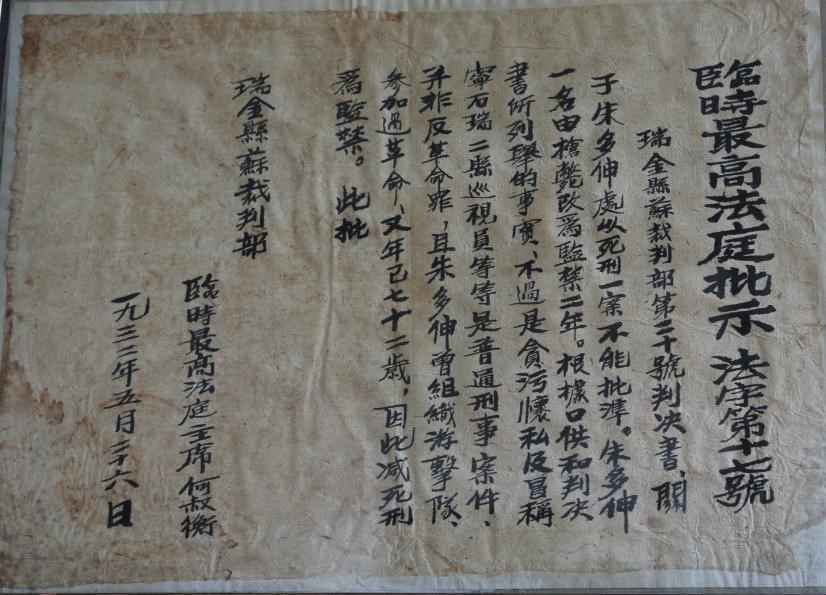 臨時最高法庭批示 法字第十七號
瑞金縣蘇裁判部第二十號判决書、關
于朱多伸處以死刑一案不能批準。朱多伸
一名由槍斃改爲監禁二年。根據口供和判决
書所列舉的事實、不過是貪污懷私及冒稱
寧石瑞二縣巡視員等等是普通刑事案件、
并非反革命罪，且朱多伸曾組織游擊隊、
參加過革命，又年已七十二歲，因此减死刑
爲監禁。此批
瑞金縣蘇裁判部
臨時最高法庭主席何叔衡
一九三二年五月二十六日